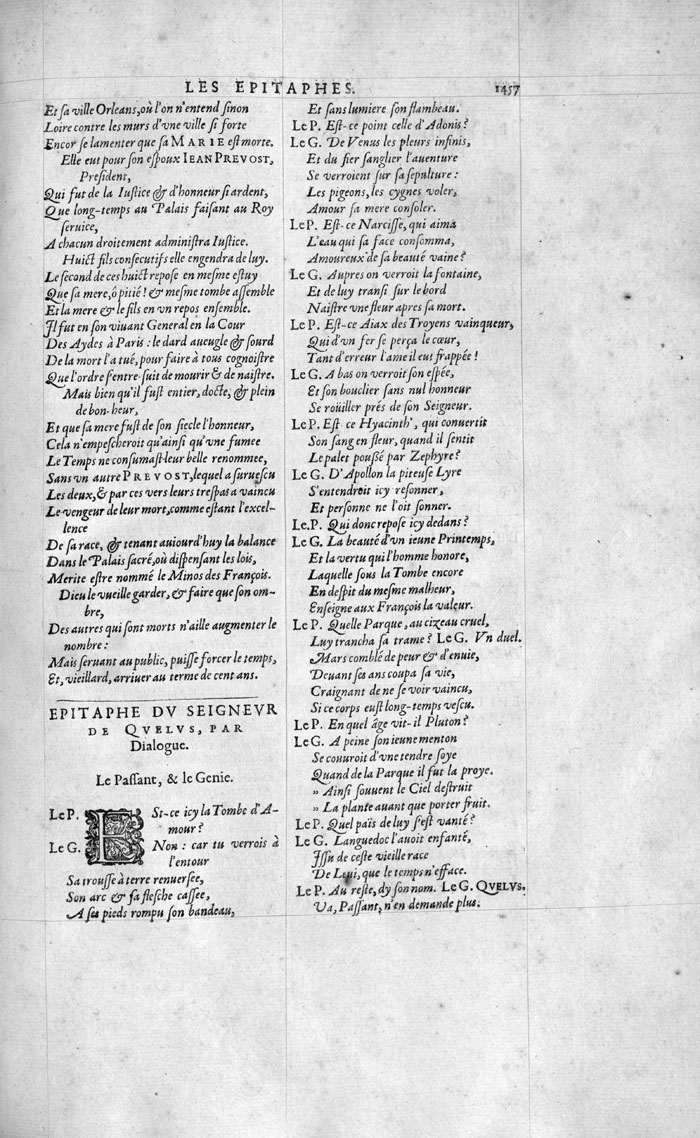 LES EPITAPHES. 1457
Et sa ville Orleans, où l'on n'entend sinon
Loire contre les murs d'vne ville si forte
Encor se lamenter que sa MARIE est morte.
Elle eut pour son espoux IEAN PREVOST,
President,
Qui fut de la Iustice & d'honneur si ardent,
Que long-temps au Palais faisant au Roy
seruice,
A chacun droitement administra Iustice.
Huict fils consecutifs elle engendra de luy.
Le second de ces huict repose en mesme estuy
Que sa mere, ô pitié! & mesme tombe assemble
Et la mere & le fils en vn repos ensemble.
Il fut en son viuant General en la Cour
Des Aydes à Paris: le dard aueugle & sourd
De la mort l'a tué, pour faire à tous cognoistre
Que l'ordre s'entre-suit de mourir & de naistre.
Mais bien qu'il fust entier, docte, & plein
de bon-heur,
Et que sa mere fust de son siecle l'honneur,
Cela n'empescheroit qu'ainsi qu'vne fumee
Le Temps ne consumast leur belle renommee,
Sans vn autre PREVOST, lequel a suruescu
Les deux, & par ces vers leurs trespas a vaincu
Le vengeur de leur mort, comme estant l'excel-
lence
De sa race, & tenant auiourd'huy la balance
Dans le Palais sacré, où dispensant les lois,
Merite estre nommé le Minos des François.
Dieu le vueille garder, & faire que son om-
bre,
Des autres qui sont morts n'aille augmenter le
nombre:
Mais seruant au public, puisse forcer le temps,
Et, vieillard, arriuer au terme de cent ans.
EPITAPHE DV SEIGNEVR
DE QVELVS, PAR
Dialogue.
Le Passant, & le Genie.
Le P. Est-ce icy la Tombe d'A-
mour?
Le G. Non: car tu verrois à
l'entour
Sa trousse à terre renuersee,
Son arc & sa flesche cassee,
A ses pieds rompu son bandeau,
Et sans lumiere son flambeau.
Le P. Est-ce point celle d'Adonis?
Le G. De Venus les pleurs infinis,
Et du fier sanglier l'auenture
Se verroient sur sa sepulture:
Les pigeons, les cygnes voler,
Amour sa mere consoler.
Le P. Est-ce Narcisse, qui aima
L'eau qui sa face consomma,
Amoureux de sa beauté vaine?
Le G. Aupres on verroit la fontaine,
Et de luy transi sur le bord
Naistre vne fleur apres sa mort.
Le P. Est-ce Aiax des Troyens vainqueur,
Qui d'vn fer se perça le cœur,
Tant d'erreur l'ame il eut frappée!
Le G. A bas on verroit son espée,
Et son bouclier sans nul honneur
Se roüiller prés de son Seigneur.
Le P. Est ce Hyacinth', qui conuertit
Son sang en fleur, quand il sentit
Le palet poußé par Zephyre?
Le G. D'Apollon la piteuse Lyre
S'entendroit icy resonner,
Et personne ne l'oit sonner.
Le P. Qui donc repose icy dedans?
Le G. La beauté d'vn ieune Printemps,
Et la vertu qui l'homme honore,
Laquelle sous la Tombe encore
En despit du mesme malheur,
Enseigne aux François la valeur.
Le P. Quelle Parque, au cizeau cruel,
Luy trancha sa trame? Le G. Vn duel.
Mars comblé de peur & d'enuie,
Deuant ses ans coupa sa vie,
Craignant de ne se voir vaincu,
Si ce corps eust long-temps vescu.
Le P. En quel âge vit-il Pluton?
Le G. A peine son ieune menton
Se couuroit d'vne tendre soye
Quand de la Parque il fut la proye.
» Ainsi souuent le Ciel destruit
» La plante auant que porter fruit.
Le P. Quel païs de luy s'est vanté?
Le G. Languedoc l'auoit enfanté,
Issu de ceste vieille race
De Leui, que le temps n'efface.
Le P. Au reste, dy son nom. Le G. QVELVS.
Va, Passant, n'en demande plus.